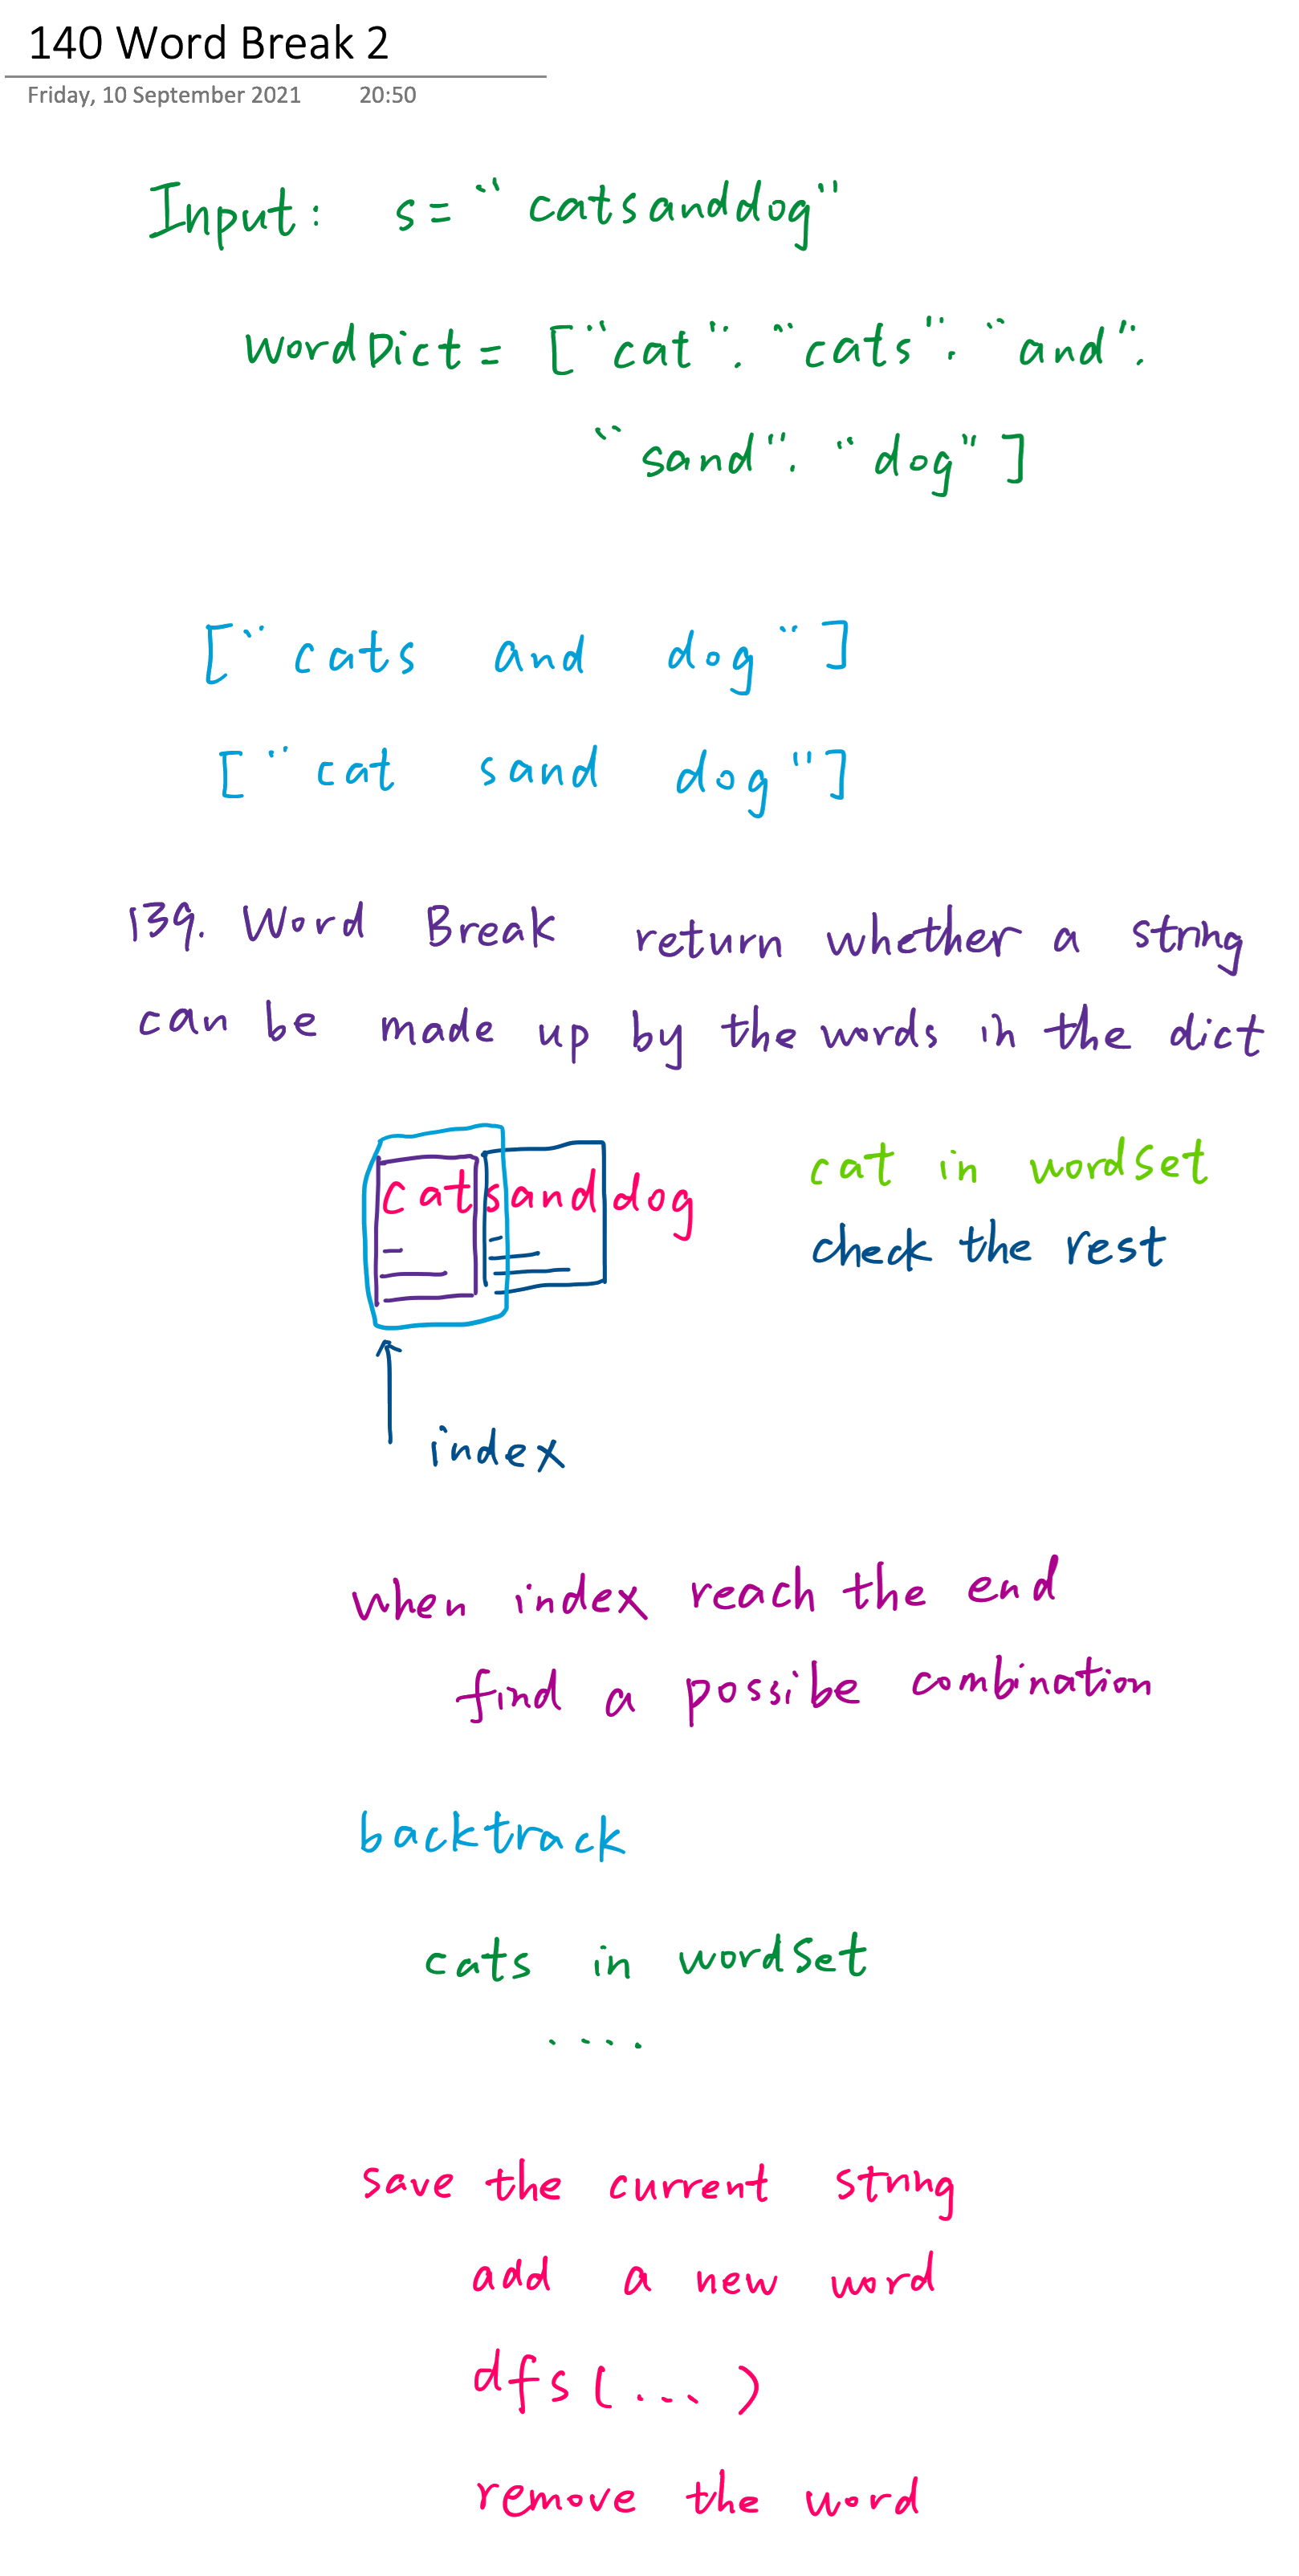 140 Word Break 2
Friday, 10 September 2021 20:50
Input: s= "catsanddog"
wordDict = ["cat". "cats". "and".
"sand". "dog"]
["cats and dog"]
["cat sand dog"]
139. Word Break return whether a string
can be made up by the words in the dict
catsanddog cat in wordset
check the rest
index
when index reach the end
find a possibe combination
backtrack
cats in wordset
....
save the current string
add a new word
dfs(...)
remove the word